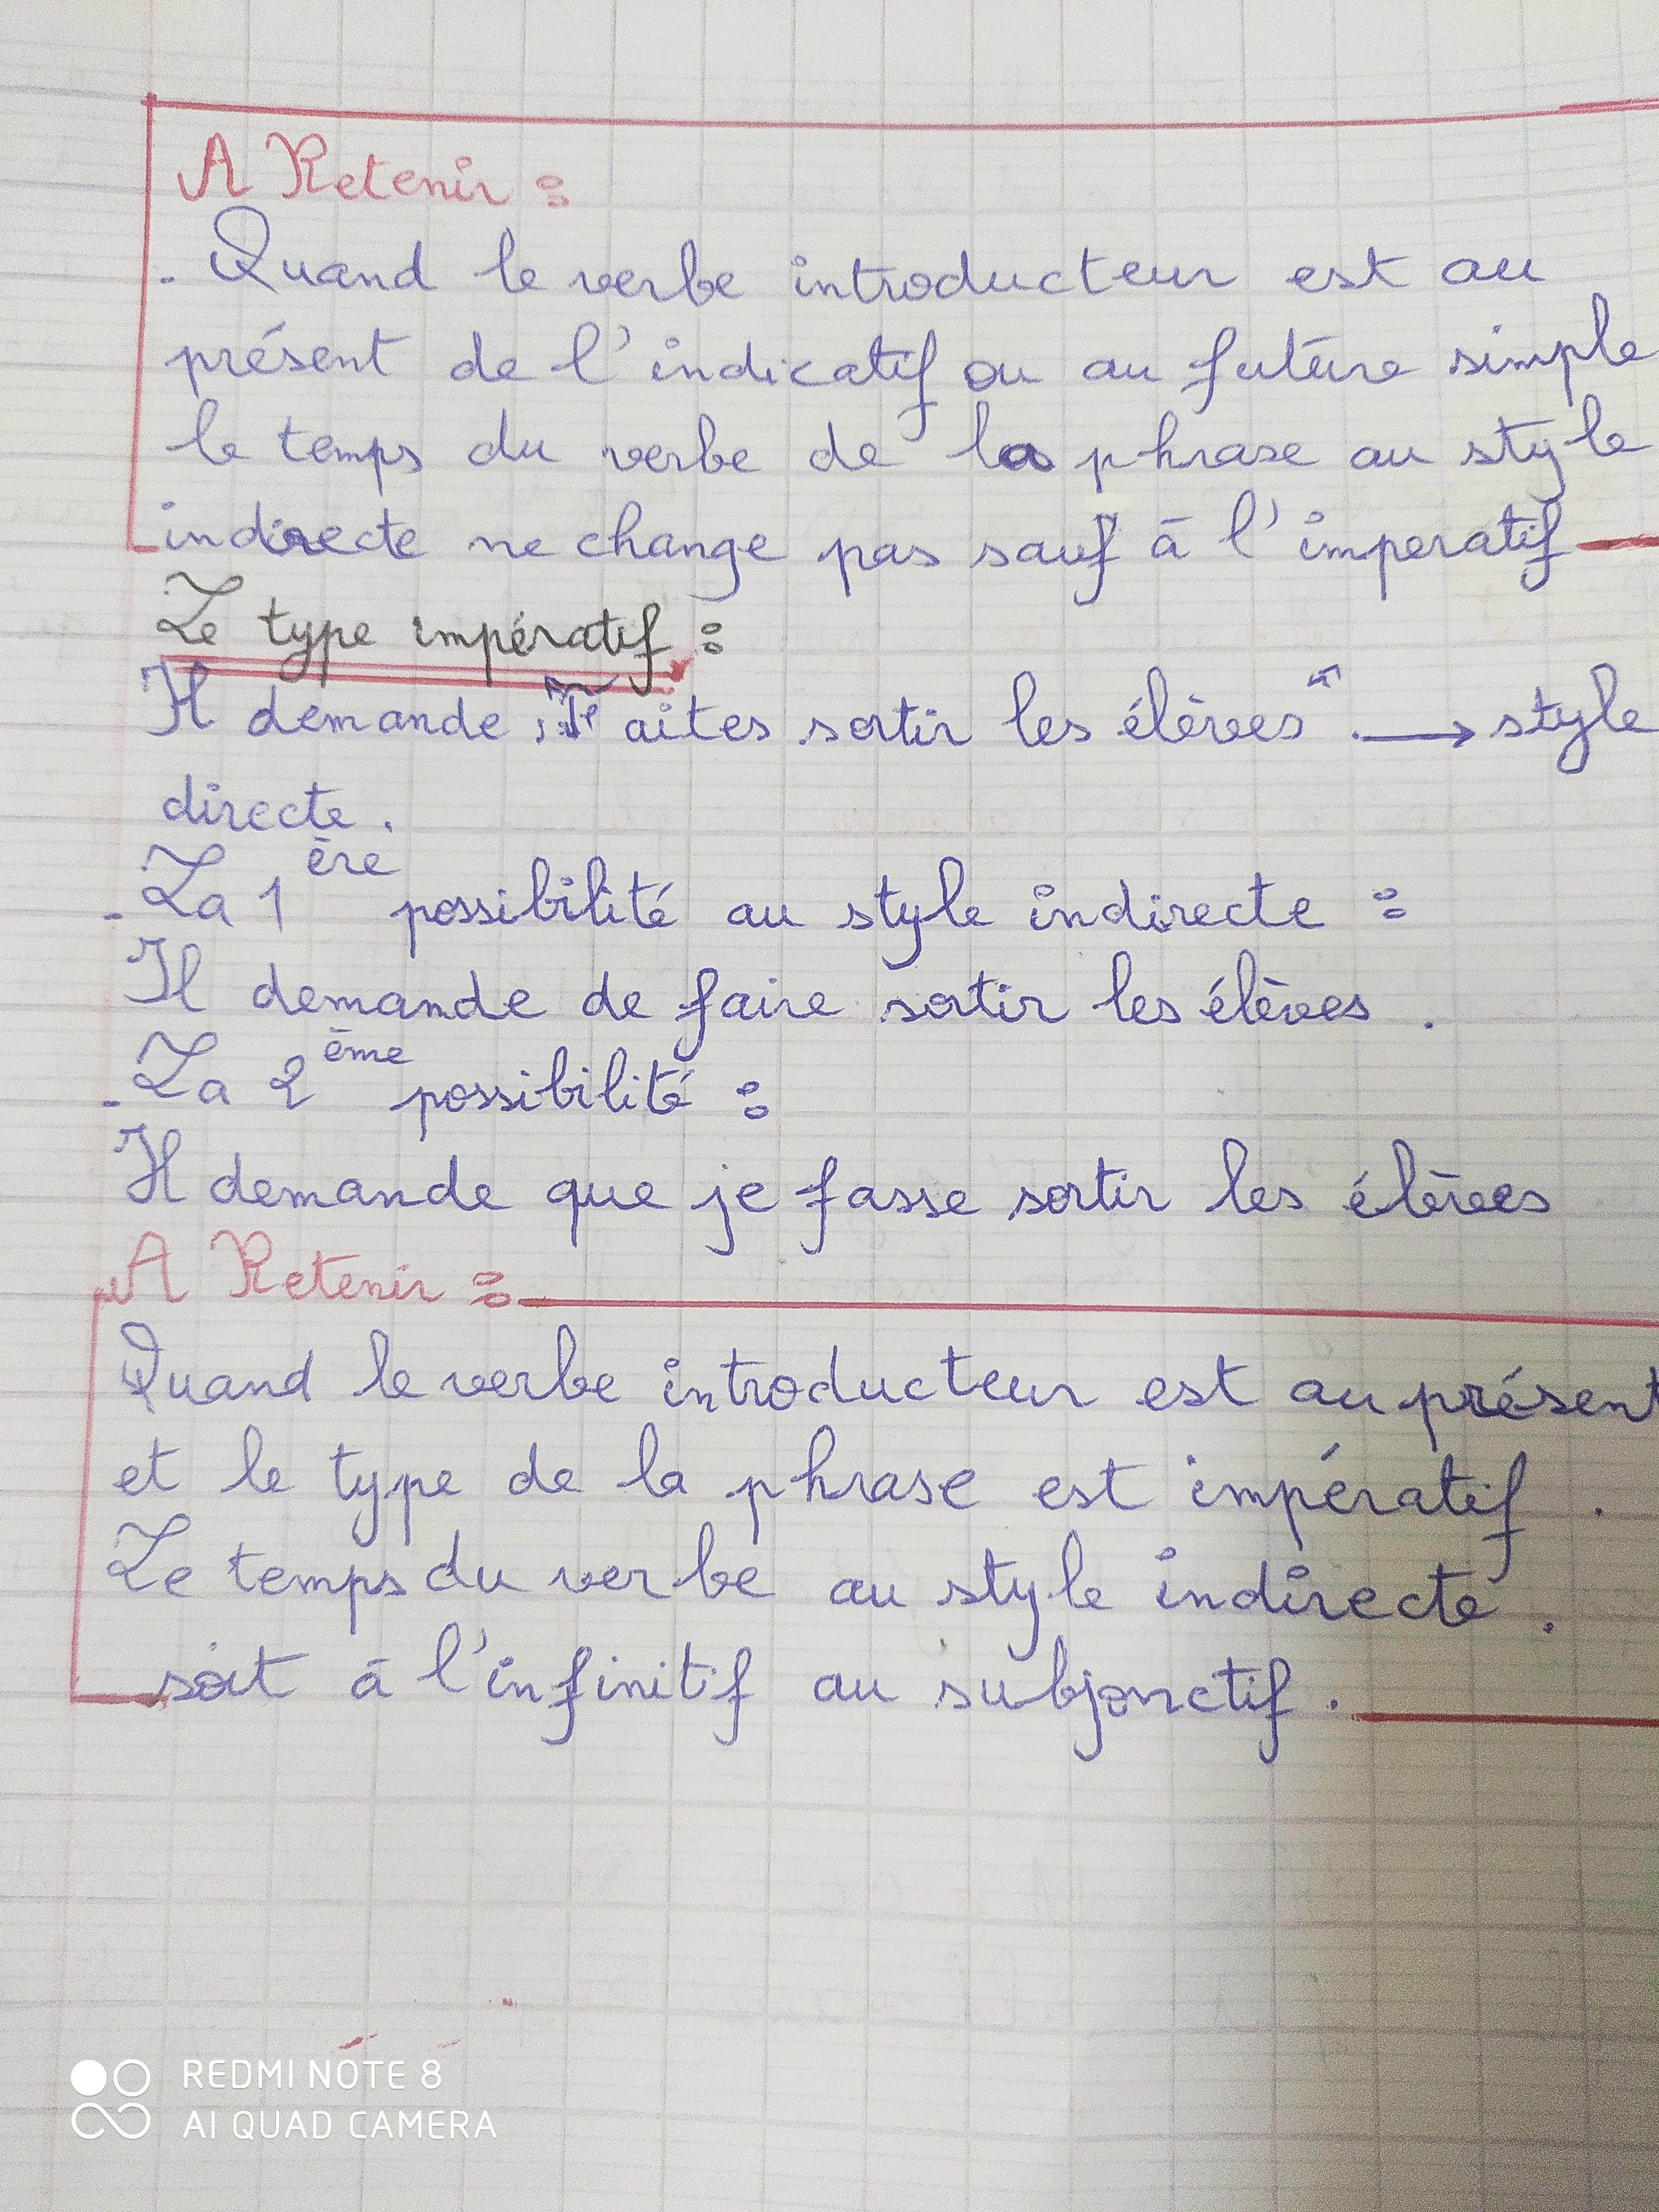 A Retenir :
- Quand le verbe introducteur est au
présent de l'indicatif ou au future simple
le temps du verbe de la phrase au style
indirecte ne change pas sauf à l'imperatif
Le type impératif :
Il demande, "Faites sortir les élèves". → style
directe.
- La 1ère possibilité au style indirecte :
Il demande de faire sortir les élèves.
- La 2ème possibilité :
Il demande que je fasse sortir les élèves
A Retenir :
Quand le verbe introducteur est au présent
et le type de la phrase est impératif.
Le temps du verbe au style indirecte.
soit à l'infinitif au subjonctif.
REDMI NOTE 8
AI QUAD CAMERA